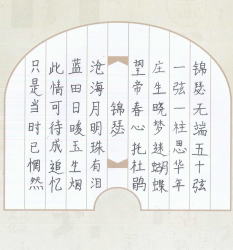 锦瑟无端五十弦
一弦一柱思华年
庄生晓梦迷蝴蝶
望帝春心托杜鹃
锦瑟
沧海月明珠有泪
蓝田日暖玉生烟
此情可待成追忆
只是当时已惘然